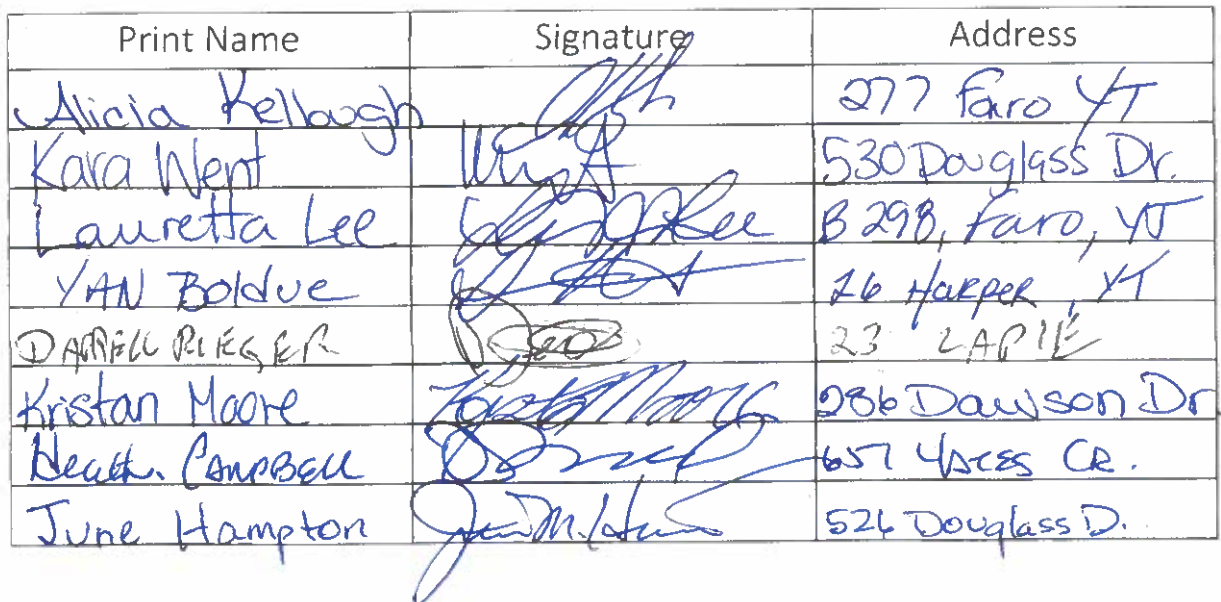 Print Name Signature Address
Alicia Kellough 277 Faro YT
Kara Went 530 Douglass Dr.
Lauretta Lee Lee B 298, Faro, YT
YAN Bolduc 26 Harper, YT
DARRELL RIEGER 23 LAPIE
Kristan Moore Moore 286 Dawson Dr
Heath. CAMPBELL 657 Yates CR.
June Hampton 526 Douglass D.